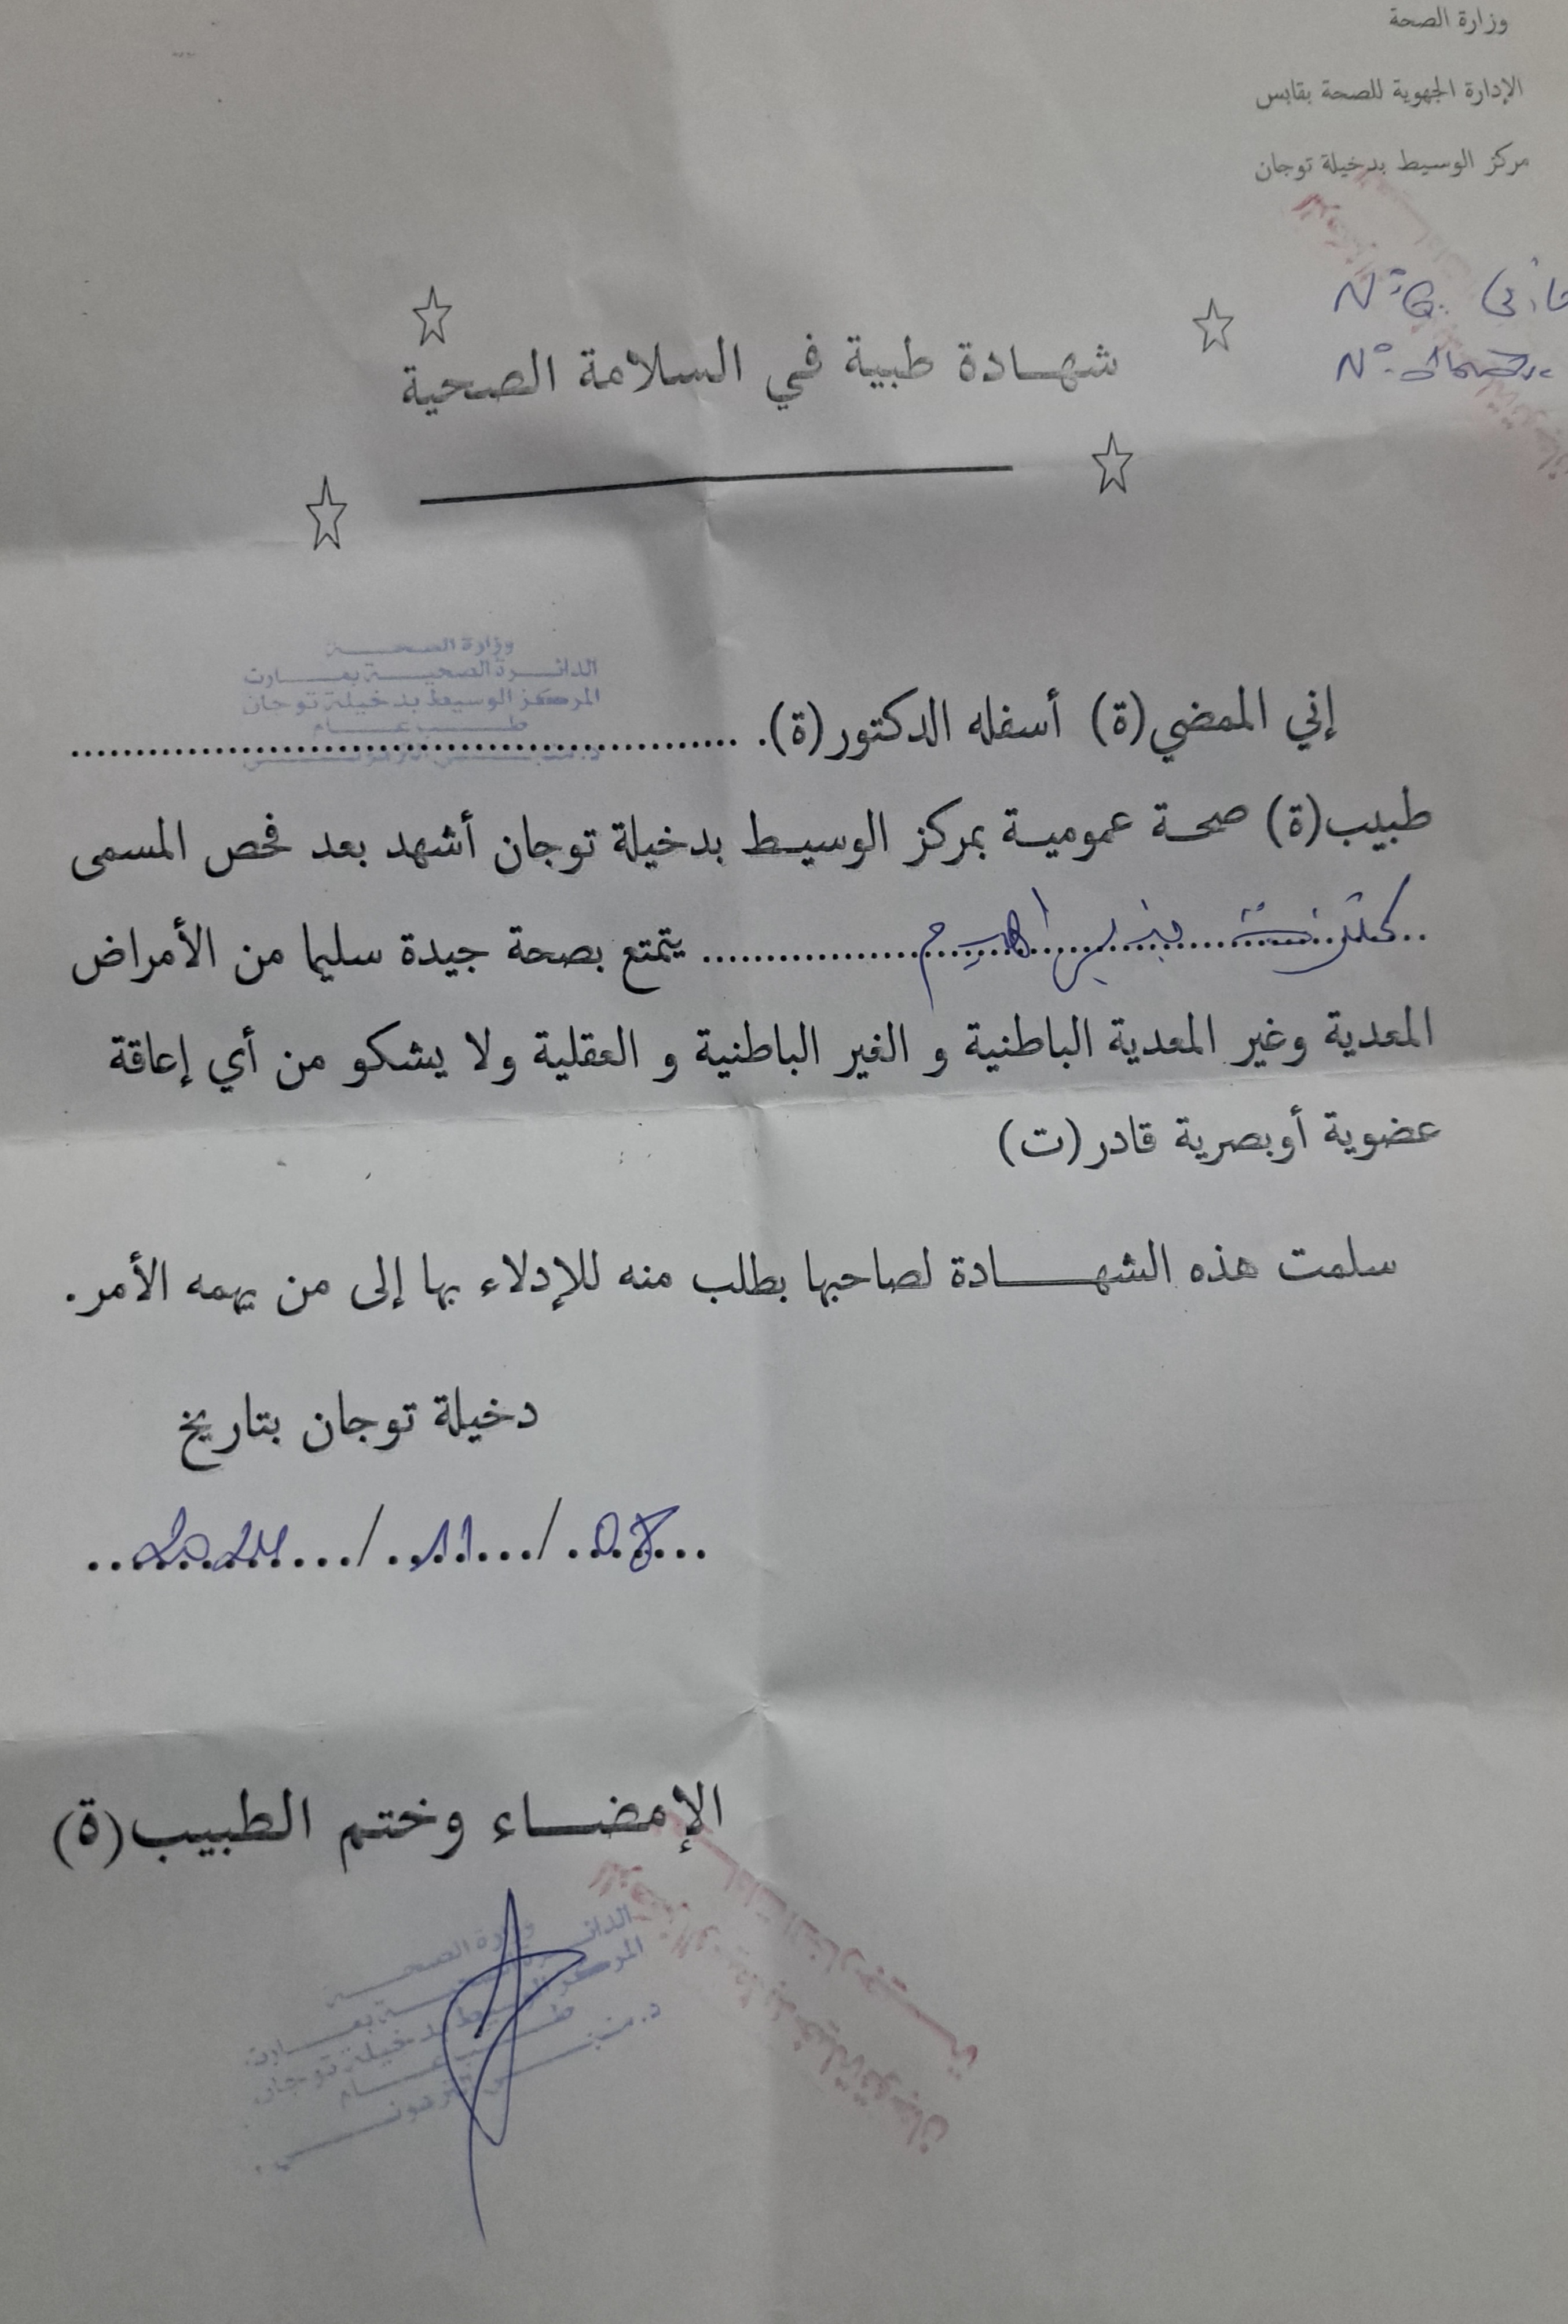 وزارة الصحة
الإدارة الجهوية للصحة بقابس
مركز الوسيط بدخيلة توجان
N°
N°
شهادة طبية في السلامة الصحية
وزارة الصحة
الدائرة الصحية بمارث
المركز الوسيط بدخيلة توجان
طبيب عام
إني الممضي(ة) أسفله الدكتور(ة). ..........
طبيب(ة) صحة عمومية بمركز الوسيط بدخيلة توجان أشهد بعد فحص المسمى
.......... يتمتع بصحة جيدة سليما من الأمراض
المعدية وغير المعدية الباطنية و الغير الباطنية و العقلية ولا يشكو من أي إعاقة
عضوية أوبصرية قادر(ت)
سلمت هذه الشهادة لصاحبها بطلب منه للإدلاء بها إلى من يهمه الأمر.
دخيلة توجان بتاريخ
08/11/2024
الإمضاء وختم الطبيب(ة)
وزارة الصحة
الدائرة الصحية بمارث
المركز الوسيط بدخيلة توجان
طبيب عام